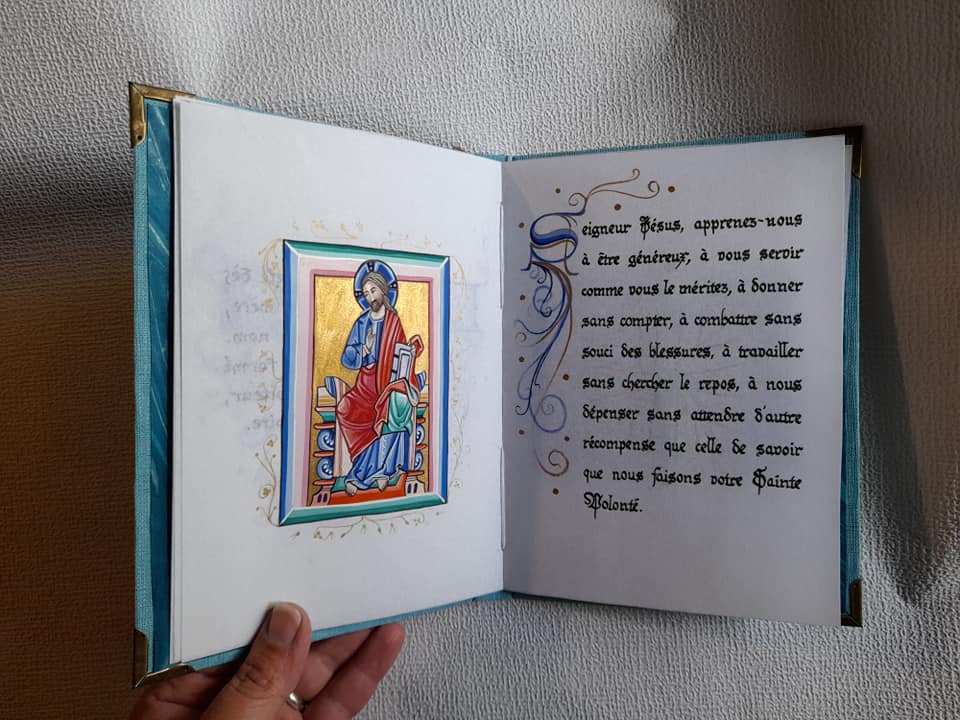 Seigneur Jésus, apprenez-nous
à être généreux, à vous servir
comme vous le méritez, à donner
sans compter, à combattre sans
souci des blessures, à travailler
sans chercher le repos, à nous
dépenser sans attendre d'autre
récompense que celle de savoir
que nous faisons votre Sainte
Volonté.